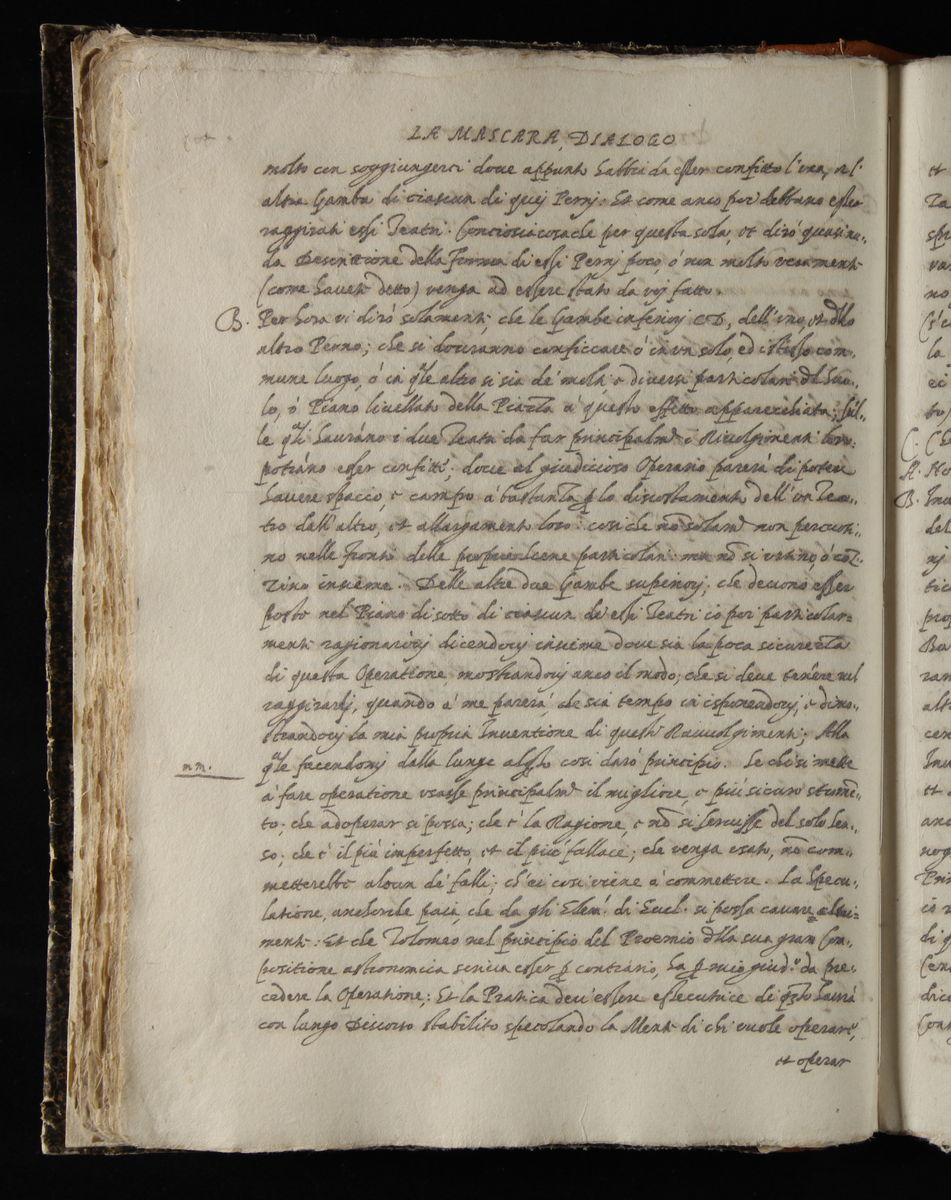 LA MASCARA, DIALOGO
molto con soggiungerci doue appunto habbia da esser confitto l'una, et l'
altra Gamba di ciascun di quej Pernj: Et come anco poi debbano essere
raggirati essi Teatri. Conciosiacosache per questa sola, et dirò quasi nu-
da Descrittione della Forma di essi Pernj poco, ò non molto ueramente
(come hauete detto) venga ad essere stato da voj fatto.
B. Per hora vi dirò solamente, che le Gambe inferiorj CD, dell'uno, et dllo
altro Perno; che si doueranno conficcare ò in vn solo, ed istesso com-
mune luogo, ò in qle altro si sia de' molti e diuersi particolari dl Suo-
lo, ò Piano liuellato della Piazza à questo effetto apparecchiata; sul-
le qli hauràno i due Teatri da far principalmte i Riuolgimenti loro:
potràno esser confitte; doue al giudicioso Operario parerà di potere
hauere spacio, e campo à bastanza p lo discostamento dell'un Tea-
tro dall'altro, et allargamento loro: cosi che nõ solamte non percuoti-
no nelle fronti delle proprie Scene particolari: ma nõ si urtino, ò coz-
zino insieme. Delle altre due Gambe superiorj; che deuono esser
poste nel Piano di sotto di ciascun de' essi Teatri io poi particolar-
mente ragionaròuj dicendouj insieme doue sia la poca sicurezza
di questa Operatione, mostrandouj anco il modo; che si deue tenere nel
raggirarlj, quando à me parerà, che sia tempo in isponendouj, e dimo-
strandouj la mia propria Inuentione di questi Riuuolgimenti; Alla
mm.
qle facendomj dalla lunge alqto cosi darò principio. Se chi si mette
à fare operatione usasse principalmte il migliore, e più sicuro strumẽ-
to, che adoperar si possa; che è la Ragione, e nõ si seruisse del solo Sen-
so; che è il più imperfetto, et il più fallace; che venga usato, nõ com-
metterebbe alcun de' falli; ch'ei cosi viene à commettere. La Specu-
latione, anchorche paia, che da gli Elemti di Eucl. si possa cauare altri-
mente: Et che Tolomeo nel principio del Proemio dlla sua gran Com-
positione astronomica scriua esser p contrario, ha p mio giud.o da pre-
cedere la Operatione; Et la Pratica deu'essere essecutrice di qto haurà
con lungo Discorso stabilito specolando la Mente di chi uuole operare,
et operar